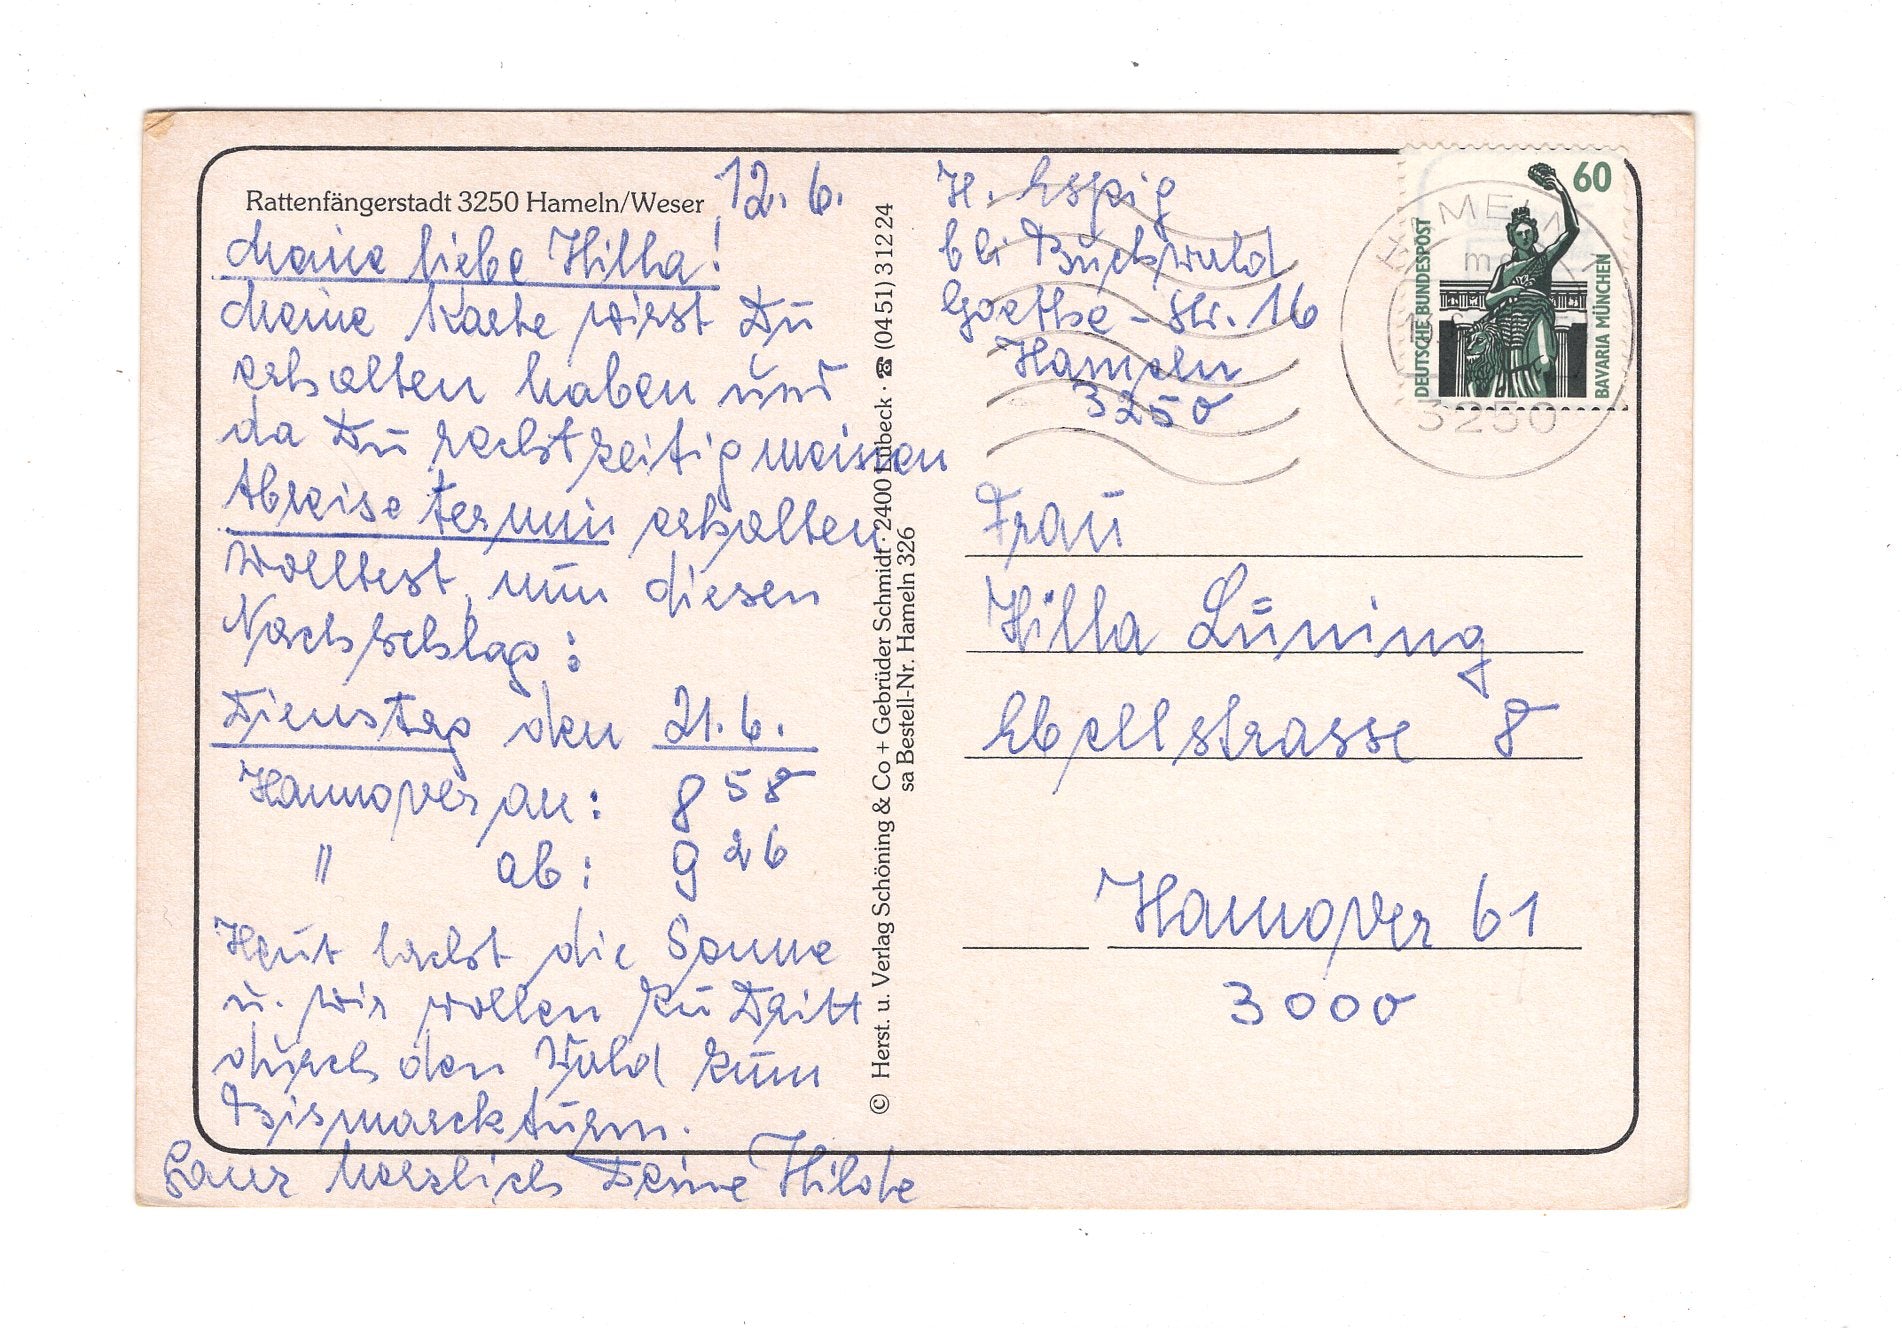 Rattenfängerstadt 3250 Hameln/Weser
12.6.
Meine liebe Hilla!
Meine Karte wirst Du
erhalten haben und
da Du rechtzeitig meinen
Abreisetermin erhalten
wolltest, nun diesen
Nachschlag:
Dienstag den 21.6.
Hannover an: 8 58
" ab: 9 26
Heut lacht die Sonne
u. wir wollen zu Dritt
durch den Wald zum
Bismarckturm.
Ganz herzlich Deine Hilde
© Herst. u. Verlag Schöning & Co + Gebrüder Schmidt · 2400 Lübeck · ☎ (0451) 31224
sa Bestell-Nr. Hameln 326
H. Espig
bei Buchwald
Goethe-Str. 16
Hameln
3250
60
DEUTSCHE BUNDESPOST
BAVARIA MÜNCHEN
HAMELN 1
3250
Frau
Hilla Lüning
Ebellstrasse 8
Hannover 61
3000